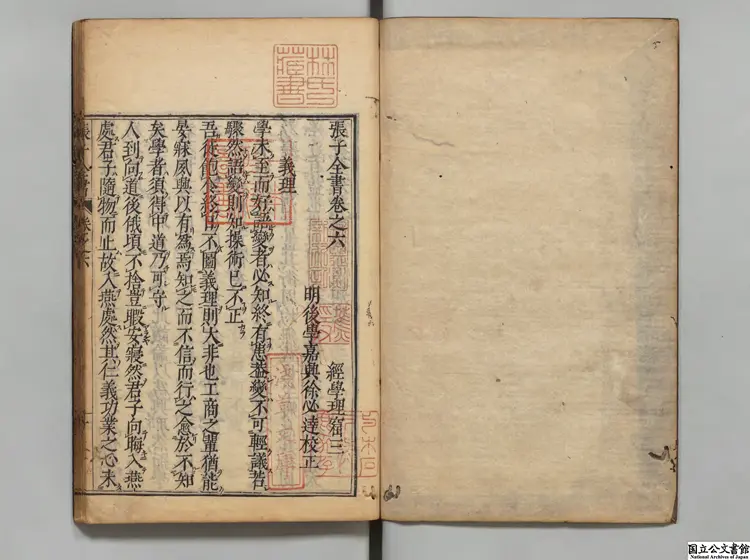 張子全書卷之六
經學理窟三
明後學嘉興徐必達校正
義理
學未至而好語變者必知終有患蓋變不可輕議若
驟然語變則知操術已不正
吾徒飽食終日不圖義理則大非也工商之輩猶能
晏寐夙興以有為焉知之而不信而行之愈於不知
矣學者須得中道乃可守
人到向道後俄頃不捨豈暇安寢然君子向晦入燕
處君子隨物而止故入燕處然其仁義功業之心未
林氏
藏書
国立公文書館
National Archives of Japan